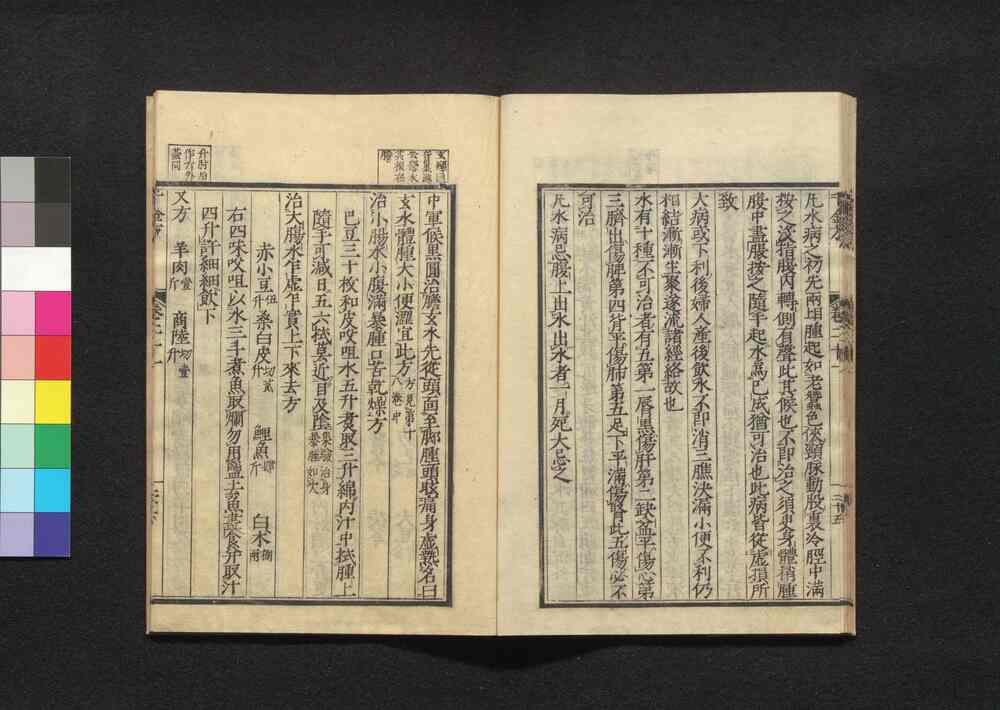 凡水病之初先兩目上腫起如老蠶色俠頸脉動股裏冷脛中滿
按之沒指腹內轉側有聲此其候也不即治之須臾身體稍腫
腹中盡脹按之隨手起水爲已成猶可治也此病皆從虛損所
致
大病或下利後婦人產後飲水不即消三膲決漏小便不利仍
相結漸漸生聚遂流諸經絡故也
水有十種不可治者有五第一脣黑傷肝第二缺盆平傷心第
三臍出傷脾第四背平傷肺第五足下平滿傷腎此五傷必不
可治
凡水病忌腹上出水出水者一月死大忌之
中軍候黑圓治膽玄水先從頭面至脚腫頭眩痛身虛熱名曰
玄水體腫大小便澀宜此方方見第十八卷中
治小腸水小腹滿暴腫口苦乾燥方
巴豆三十枚和皮㕮咀水五升煮取三升綿內汁中拭腫上
隨手可減日五六拭莫近目及陰集驗治身暴腫如吹
治大腸水乍虛乍實上下來去方
赤小豆伍升 桑白皮切貳升 鯉魚肆斤 白朮捌兩
右四味㕮咀以水三斗煮魚取爛勿用鹽去魚盡食并取汁
四升許細細飲下
又方 羊肉壹斤 商陸切壹升